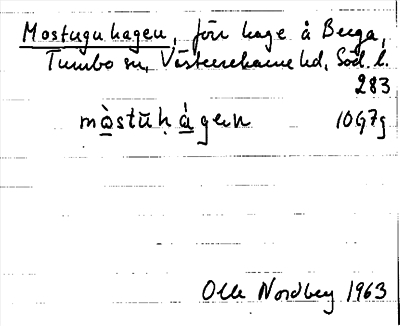 Mostuguhagen, förr hage å Berga,
Tumbo sn, Västerrekarne hd, Söd. l.
283
mà̱stūḥà̱gen 10G7g
Olle Nordberg 1963